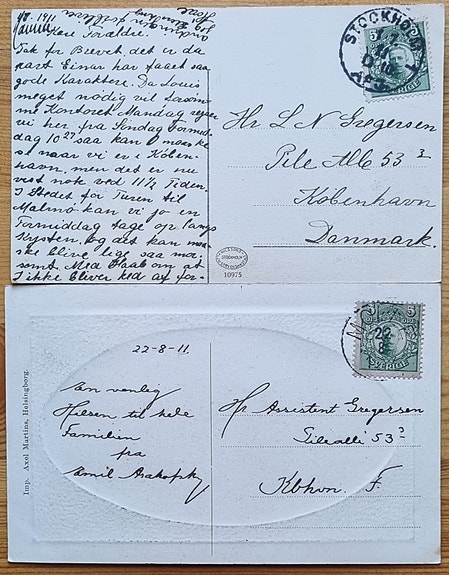 7/8. 1911
Kære Forældre.
Tak for Brevet, det er da
rart Einar har faaet saa
gode Karakterer. Da Louis
meget nødig vil forsøm-
me Kontoret Mandag rejser
vi her fra Søndag Formid-
dag 10 27 saa kan I maaske
se naar vi er i Køben-
havn, men det er nu
vist nok ved 11½ Tiden.
I Stedet for Turen til
Malmö kan vi jo en
Formiddag tage op langs
Kysten, og det kan maa-
ske blive lige saa mor-
somt. Med Haab om at
I ikke bliver ked af for-
STOCKHOLM
5
SVERIGE
Hr L N Gregersen
Pile Allé 53 3
København
Danmark.
STOCKHOLM
10975
22-8-11.
En venlig
Hilsen til hele
Familien
fra
Emil
5
SVERIGE
Hr Assistent Gregersen
Pileallé 53 3
Kbhvn. F.
Imp. Axel Martins, Halsingborg.